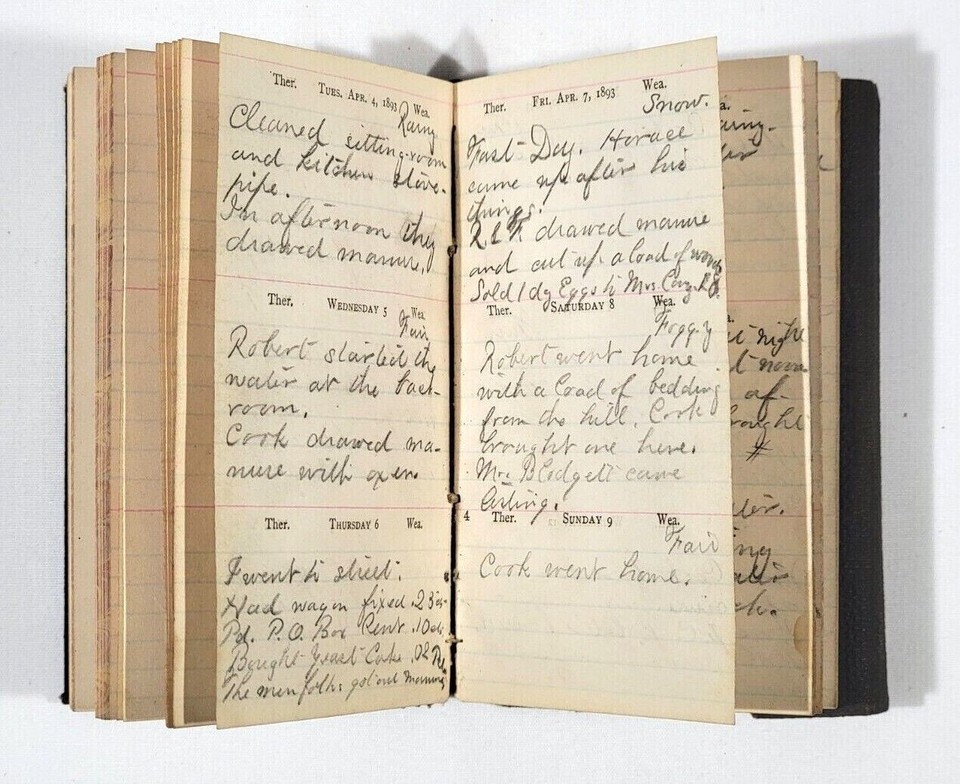 Ther. TUES. APR. 4, 1893 Wea.
Rainy
Cleaned sitting-room
and kitchen stove-
pipe.
In afternoon they
drawed manure.
Ther. WEDNESDAY 5 Wea.
Fair
Robert started the
water at the back-
room.
Cook drawed ma-
nure with oxen.
Ther. THURSDAY 6 Wea.
F went to street.
Had wagon fixed .25
Pd. P.O. Box Rent .10
Bought Yeast Cake .02
The men folks got out manure
Ther. FRI. APR. 7, 1893 Wea.
Snow.
Fast Day. Horace
came up after his
things.
R. & F. drawed manure
and cut up a load of wood
Sold 1 dz Eggs to Mrs
Ther. SATURDAY 8 Wea.
Foggy
Robert went home
with a load of bedding
from the hill. Cook
brought one here.
Mr. Blodgett came
listing.
4 Ther. SUNDAY 9 Wea.
Fair
Cook went home.
night
noon
af-
#